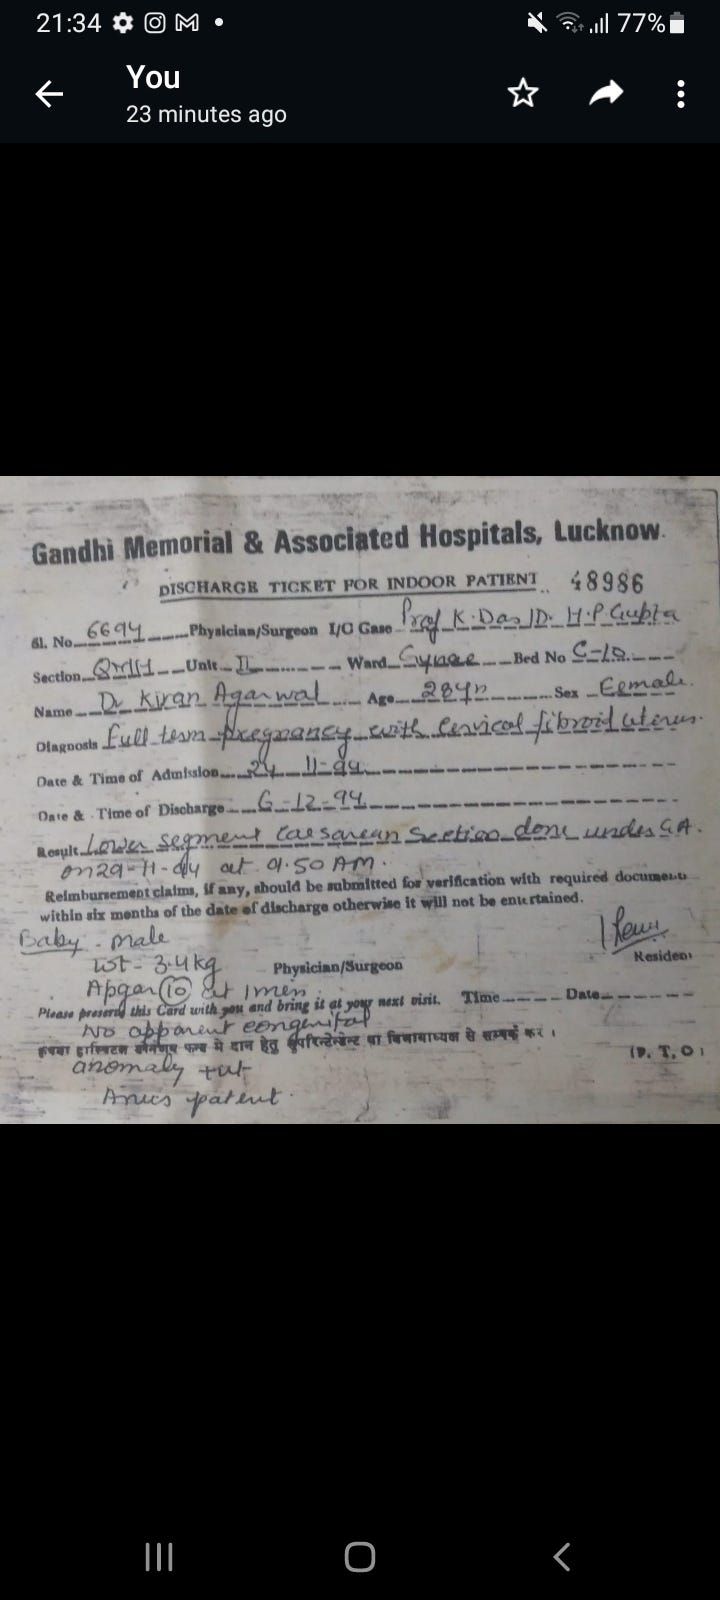 21:34 77%
You
23 minutes ago
Gandhi Memorial & Associated Hospitals, Lucknow.
DISCHARGE TICKET FOR INDOOR PATIENT 48986
Sl. No. 6694 Physician/Surgeon I/C Case Prof K. Das / D. H.P Gupta
Section QMH Unit II Ward Gynae Bed No C-10
Name Dr Kiran Agarwal Age 28yr Sex Female.
Diagnosis Full term pregnancy with cervical fibroid uterus.
Date & Time of Admission 24 11-94
Date & Time of Discharge 6-12-94
Result Lower segment Caesarean Section done under G.A.
on 29-11-94 at 9.50 AM.
Reimbursement claims, if any, should be submitted for verification with required documents
within six months of the date of discharge otherwise it will not be entertained.
Baby - male
wt - 3.4 kg Physician/Surgeon Resident
Apgar 10 at 1 min
Please preserve this Card with you and bring it at your next visit. Time Date
No apparent congenital
कृपया हास्पिटल फण्ड मे दान हेतु सुपरिन्टेन्डेन्ट या विभागाध्यक्ष से सम्पर्क करें ।
(P. T. O)
anomaly
Anus patent.